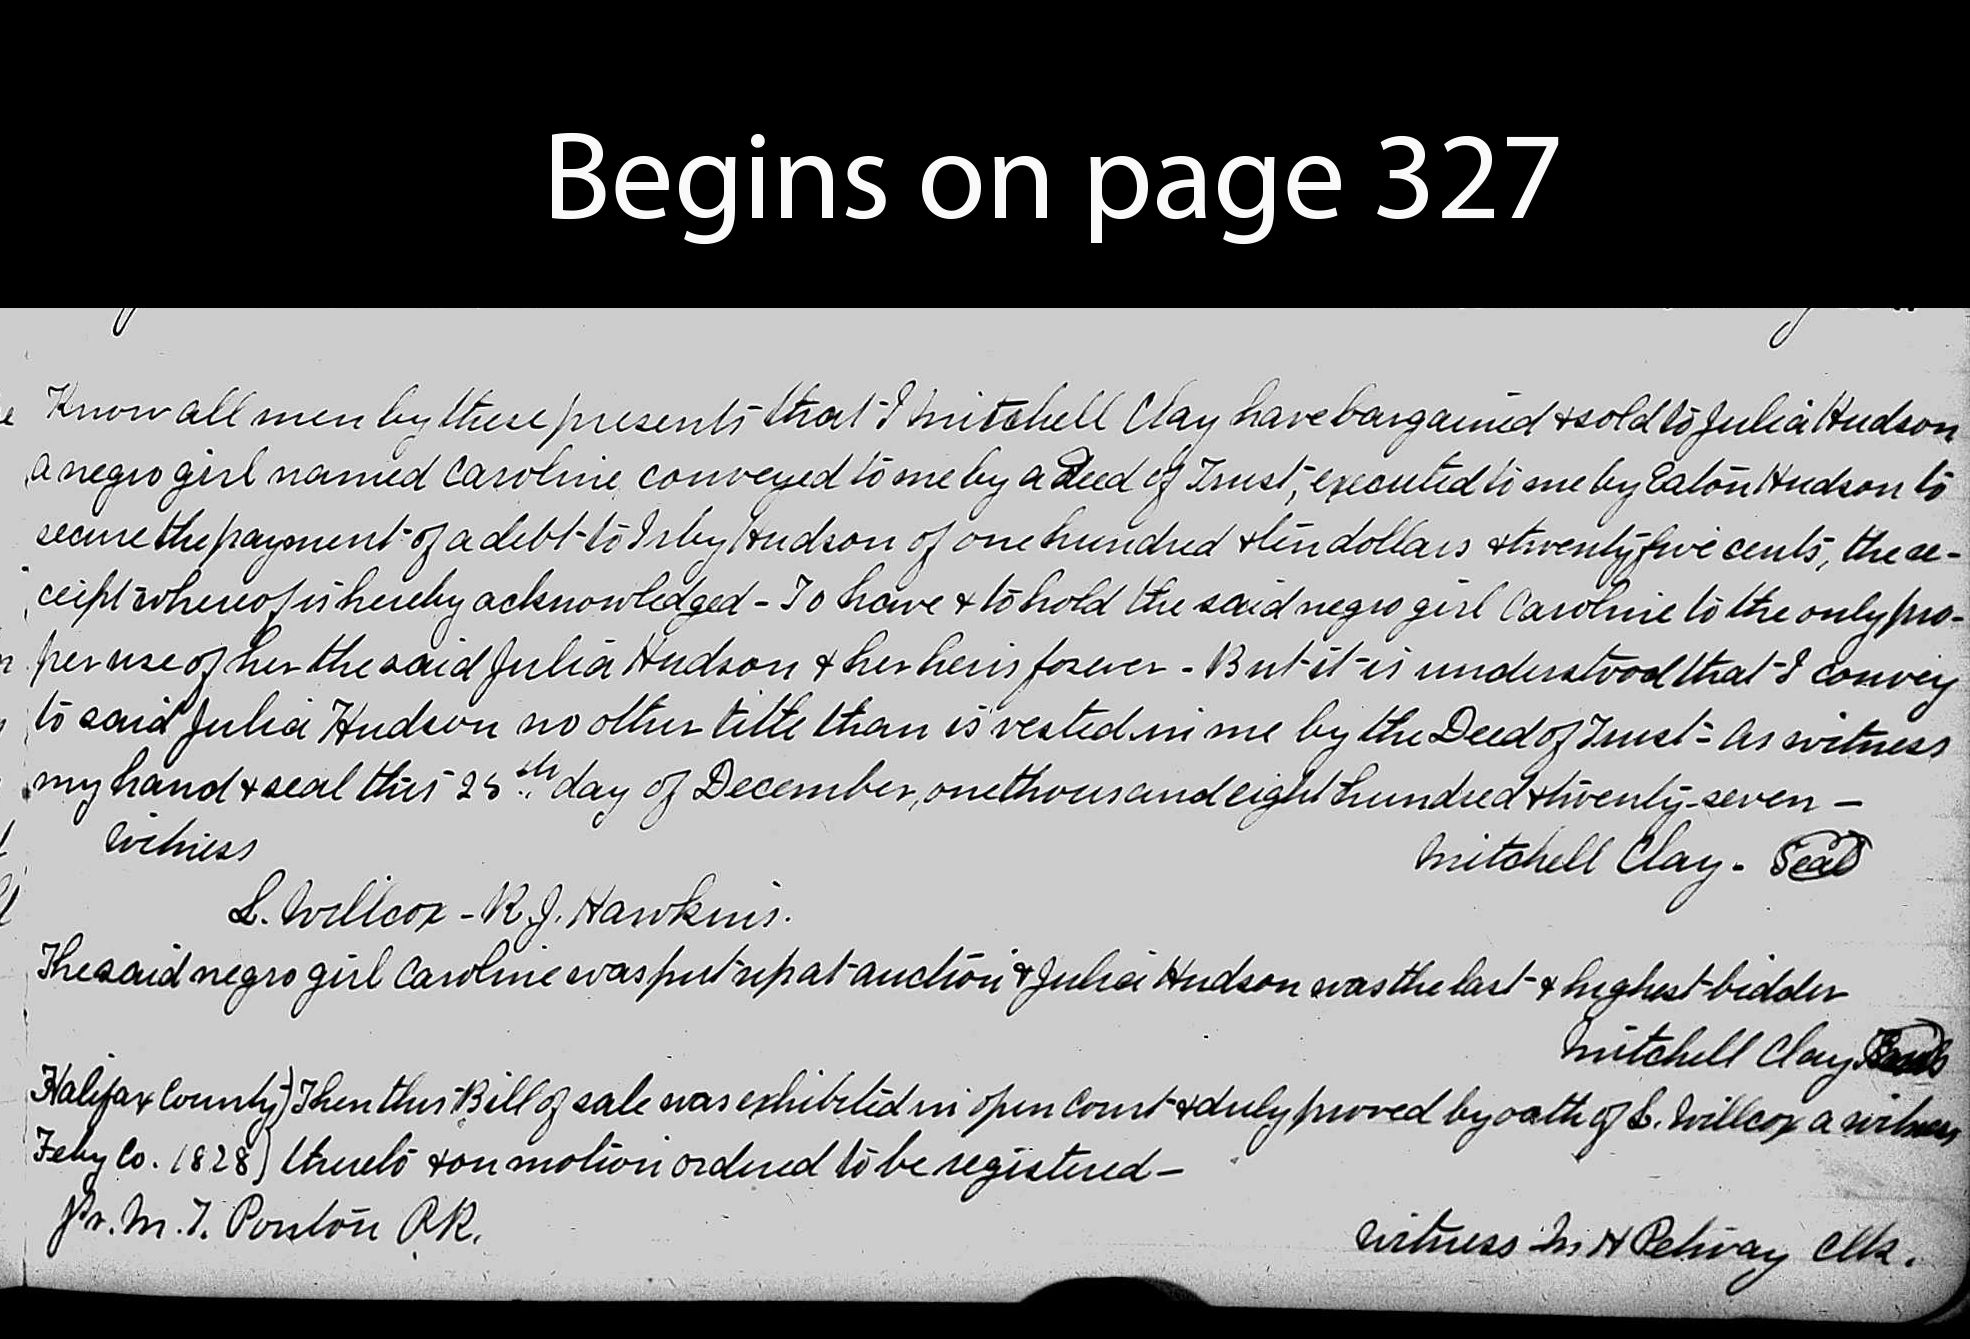 Begins on page 327
Know all men by these presents that I Mitchell Clay have bargained & sold to Julia Hudson
a negro girl named Caroline conveyed to me by a Deed of Trust, executed to me by Eaton Hudson to
secure the payment of a debt to Irby Hudson of one hundred & ten dollars & twenty five cents, the re-
ceipt whereof is hereby acknowledged - To have & to hold the said negro girl Caroline to the only pro-
per use of her the said Julia Hudson & her heirs forever - But it is understood that I convey
to said Julia Hudson no other title than is vested in me by the Deed of Trust - As witness
my hand & seal this 25th day of December, one thousand eight hundred & twenty-seven -
Witness
Mitchell Clay - Seal
L. Willcox - R. J. Hawkins.
The said negro girl Caroline was put up at auction & Julia Hudson was the last & highest bidder
Mitchell Clay Seal
Halifax County) Then this Bill of sale was exhibited in open Court & duly proved by oath of L. Willcox a witness
Feby Co. 1828) thereto & on motion ordered to be registered -
Pr. M. T. Ponton P.R.
Witness M H Petway Clk.